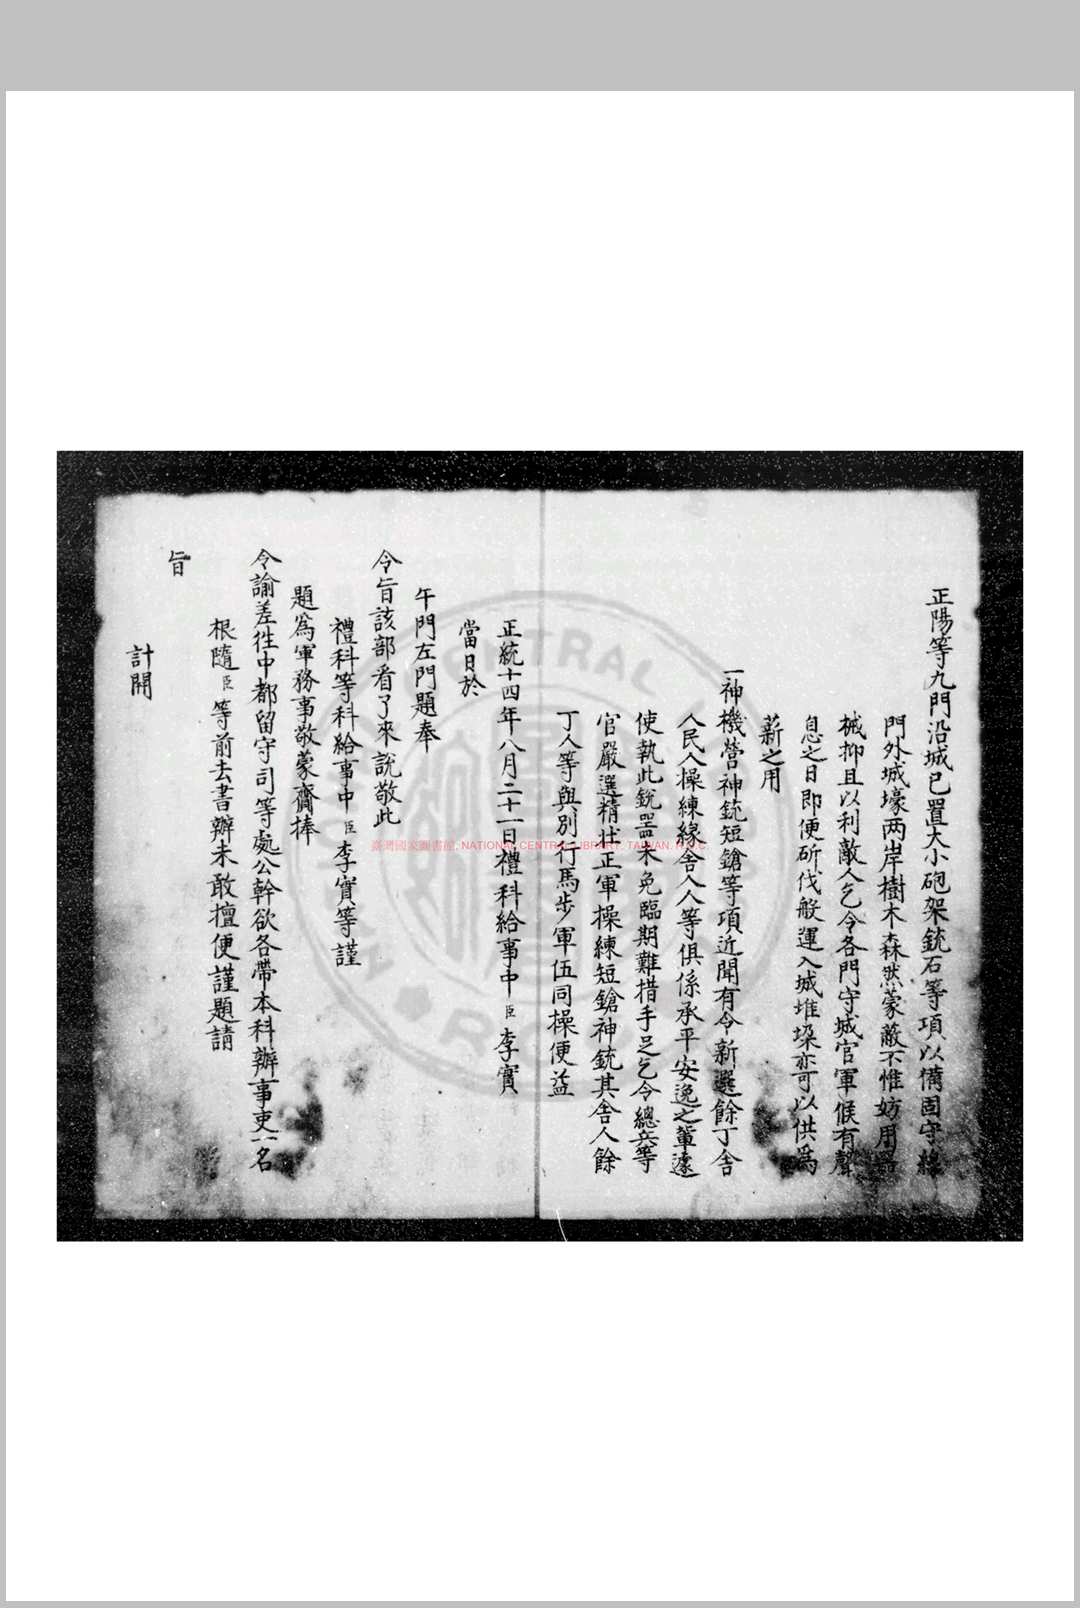 正陽等九門沿城已置大小砲架銃石等項以備固守緣
門外城壕两岸樹木森然蒙蔽不惟妨用器
械抑且以利敵人乞令各門守城官軍候有聲
息之日即便斫伐般運入城堆垜亦可以供為
薪之用
一神機營神銃短鎗等項近聞有令新選餘丁舍
人民人操練緣舍人人等俱係承平安逸之輩遽
使執此銃器未免臨期難措手足乞令總兵等
官嚴選精壮正軍操練短鎗神銃其舍人餘
丁人等與別行馬步軍伍同操便益
正統十四年八月二十一日禮科給事中臣李實
當日於
午門左門題奉
令旨該部看了來說敬此
禮科等科給事中臣李實等謹
題為軍務事敬蒙齎捧
令諭差徃中都留守司等處公幹欲各帶本科辦事吏一名
根隨臣等前去書辦未敢擅便謹題請
旨
計開
臺灣國家圖書館, NATIONAL CENTRAL LIBRARY, TAIWAN, R.O.C